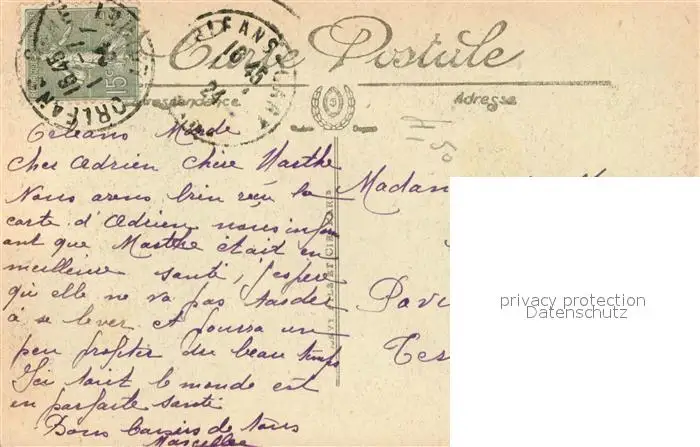 Carte Postale
Correspondance
Adresse
ORLEANS
16 45
24
ORLEANS
15 45
1 - 1
24
15c
H 50
Orléans Mardi
Cher Adrien Chère Marthe
Nous avons bien reçu la
carte d'Adrien nous infor
ant que Marthe était en
meilleure santé, j'espère
qu'elle ne va pas tarder
à se lever et pourra un
peu profiter du beau temps
Ici tout le monde est
en parfaite santé
Bons baisers de tous
Marcelle
Madam
Pav
Tes
LEVY FILS ET CIE PARIS
privacy protection
Datenschutz